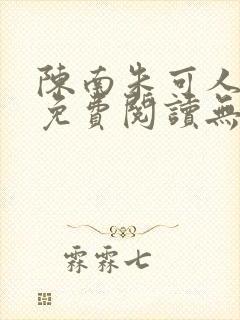 陳南朱可人
免費閱讀無
霖霖七